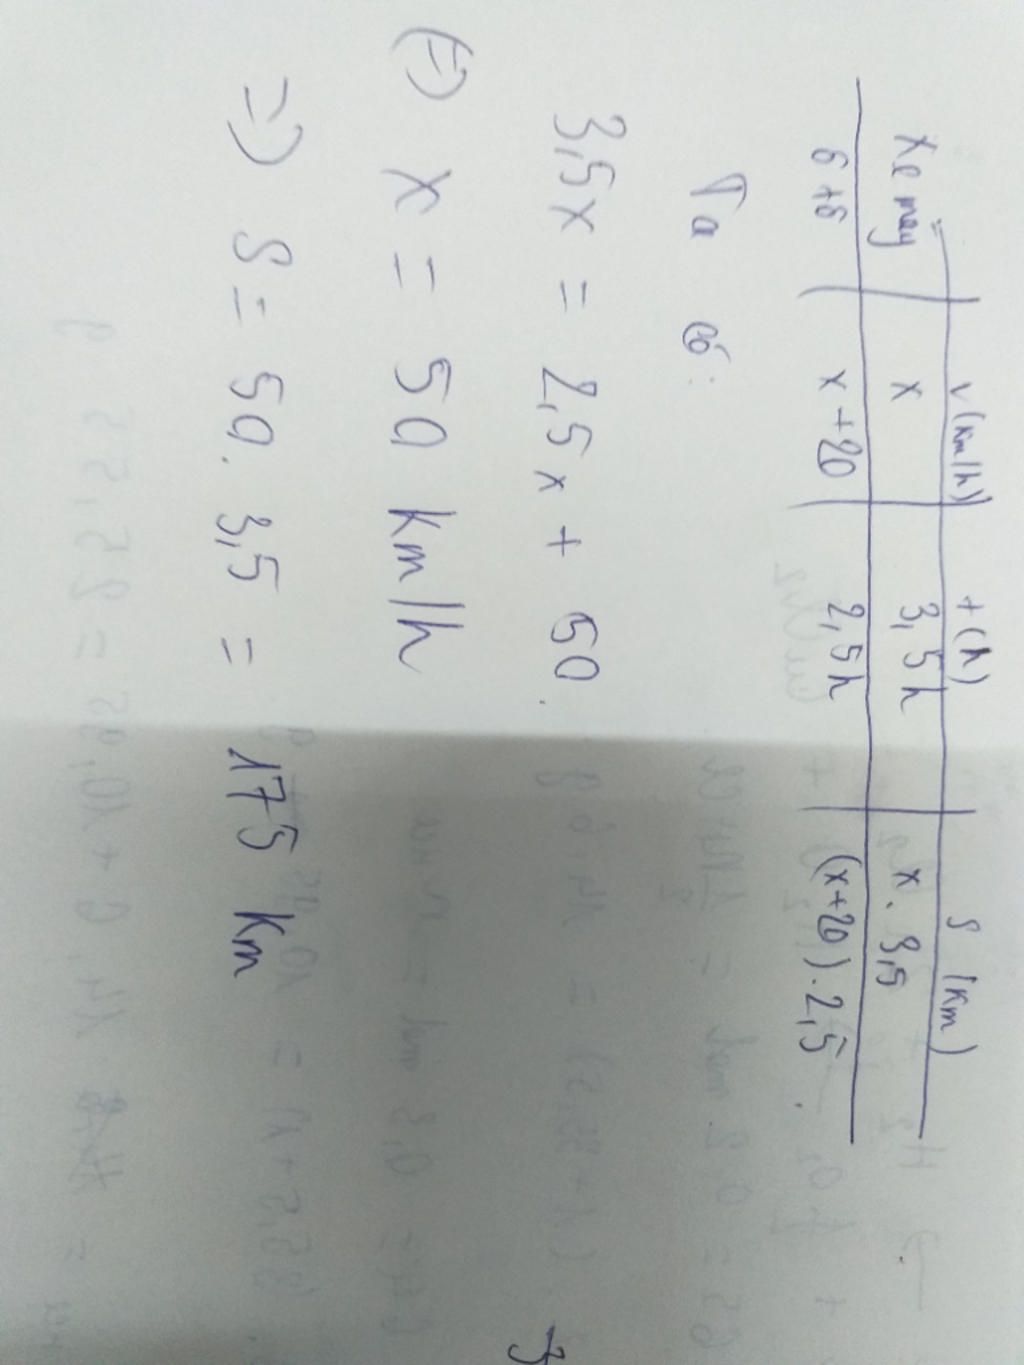 v (km/h) t (h) S (km)
Xe máy x 3,5h x. 3,5
ô tô x+20 2,5h (x+20).2,5
Ta có:
3,5x = 2,5x + 50
(=) x = 50 km/h
=) S = 50. 3,5 = 175 km